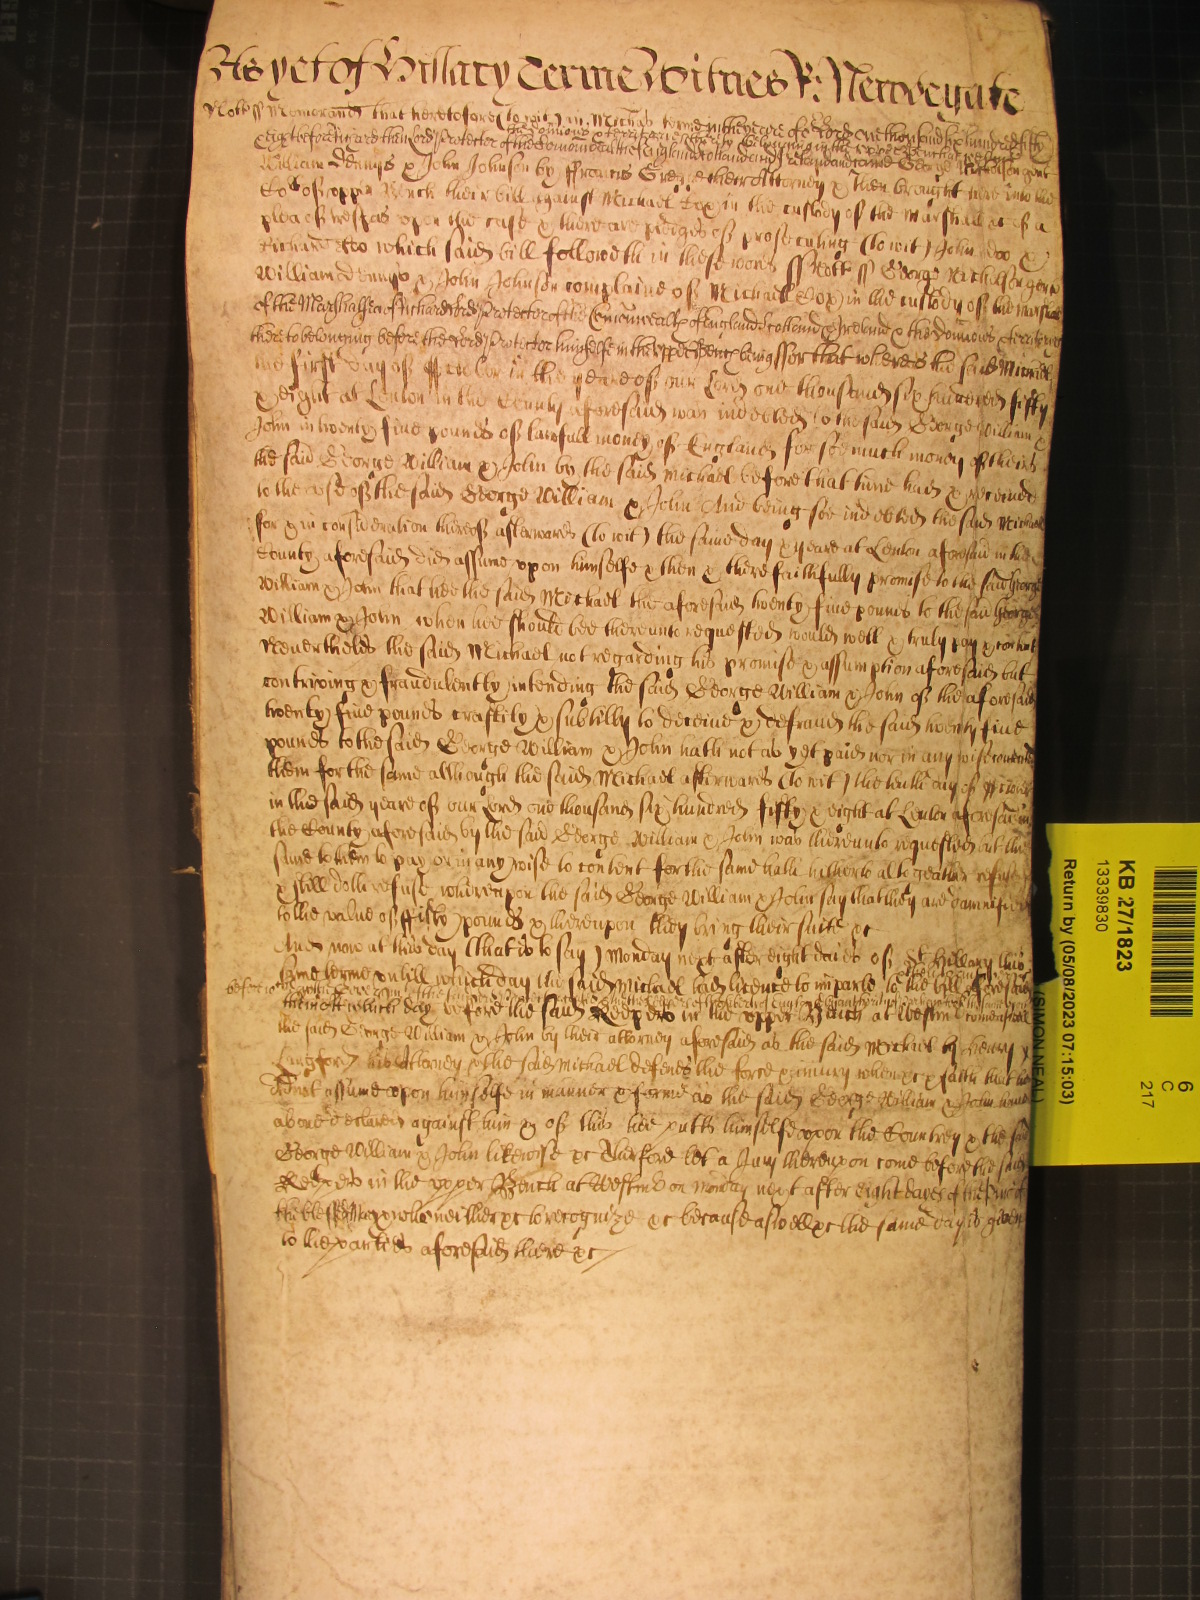 As yet of Hillary Terme Witnes R: Newdegate
Nott ss Memorand that heretofore (to wit) in Michas terme in the yeare of or Lord one thousand six hundred fifty
the dominions & territories thereto belonging in the upper Bench at
eight before Richard then lord Protector of the Comonwealth of England Scotland and Ireland and came George Nicholson gent
William Dennis & John Johnson by ffrancis Greene their Attorney & then brought here into the
Cot of upper Bench their bill against Michael Cox in the custody of the Marshall &c of a
plea of trespas upon the case & there are pledges of prosecuting (to wit) John Doo &
Richard Roo which said bill followeth in these words ss Nott ss George Nicholson gent
William Dennis & John Johnson complaine of Michael Cox in the custody of the Marshal
of the Marshallsea of Richard lord Protector of the Comonwealth of England Scotland & Ireland & the Dominions & territories
thereto belonging before the Lord Protector himselfe in the upper Bench being ffor that whereas the said Michael
the first day of October in the yeare of our Lord one thousand six hundred fifty
& eight at Lenton in the County aforesaid was indebted to the said George William &
John in twenty five pounds of lawfull money of England for soe much money of theirs
the said George William & John by the said Michael before that time had & received
to the use of the said George William & John And being soe indebted the said Michael
for & in consideration thereof afterwards (to wit) the same day & yeare at Lenton aforesaid in the
County aforesaid did assume upon himselfe & then & there faithfully promise to the said George
William & John that hee the said Michael the aforesaid twenty five pounds to the said George
William & John when hee should bee thereunto requested would well & truly pay & content
Neverthelès the said Michael not regarding his promise & assumption aforesaid but
contriving & fraudulently intending the said George William & John of the aforesaid
twenty five pounds craftily & subtilly to deceive & defraud the said twenty five
pounds to the said George William & John hath not as yet paid nor in any wise contented
them for the same although the said Michael afterwards (to wit) the tenth day of October
in the said yeare of our Lord one thousand six hundred fifty & eight at Lenton aforesaid in
the County aforesaid by the said George William & John was thereunto requested but the
same to them to pay or in any wise to content for the same hath hitherto altogeather refused
& still doth refuse whereupon the said George William & John say that they are damnified
to the value of ffifty pounds & thereupon they bring their suite &c
And now at this day (that is to say) Monday next after eight daies of St Hillary this
same terme untill which day the said Michael had licence to imparle to the bill aforesaid
them att which day before the said Keepers in the upper Bench at Westm come aswell
the said George William & John by their attorney aforesaid as the said Michael by Henry
Langford his Attorney & the said Michael defends the force & iniury when &c & saith that hee
did not assume upon himselfe in manner & forme as the said George William & John have
above declared against him & of this hee putts himselfe upon the Countrey & the said
George William & John likewise &c Therfore let a Jury thereupon come before the said
Keepers in the upper Bench at Westm on Monday next after eight dayes of the Purif of
the blessed Mary who neither &c to recognize &c because aswell &c the same day is given
to the parties aforesaid there &c
6
C
217
KB 27/1823
13339830
Return by (05/08/2023 07:15:03)
(SIMON NEAL)